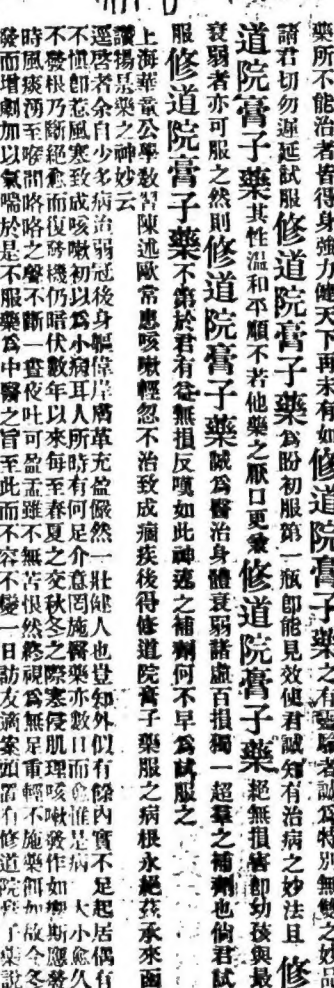 藥所不能治者皆得身強力健天下再未有如修道院膏子藥之有靈驗者誠爲特別無雙之妙品
請君切勿遲延試服修道院膏子藥爲盼初服第一瓶即能見效使君誠知有治病之妙法且修
道院膏子藥其性溫和平順不若他藥之厭口更兼修道院膏子藥絕無損害即幼孩與最
衰弱者亦可服之然則修道院膏子藥誠爲醫治身體衰弱諸虛百損獨一超羣之補劑也倘君試
服修道院膏子藥不第於君有益無損反嘆如此神速之補劑何不早爲試服之
上海華童公學教習陳述歐常患咳嗽輕忽不治致成痼疾後得修道院膏子藥服之病根永絕茲承來函
讚揚是藥之神妙云
逕啓者余自少多病治弱冠後身軀偉岸膚革充盈儼然一壯健人也豈知外似有餘內實不足起居偶有
不愼即惹風寒致成咳嗽初以爲小病耳人所時有何足介意罔施醫藥亦數日而愈惟是病 大小愈久
不發根乃斷絕愈而復發機仍暗伏數年以來每至春夏之交秋冬之際寒侵肌理咳嗽發作如響斯應發
時風痰湧至喉間咯咯之聲不斷一晝夜吐可盈盂雖不無苦恨然終視爲無足重輕不施藥餌如故今冬
發而增劇加以氣喘於是不服藥爲中醫之旨至此而不容不變一日訪友適案頭置有修道院膏子藥說